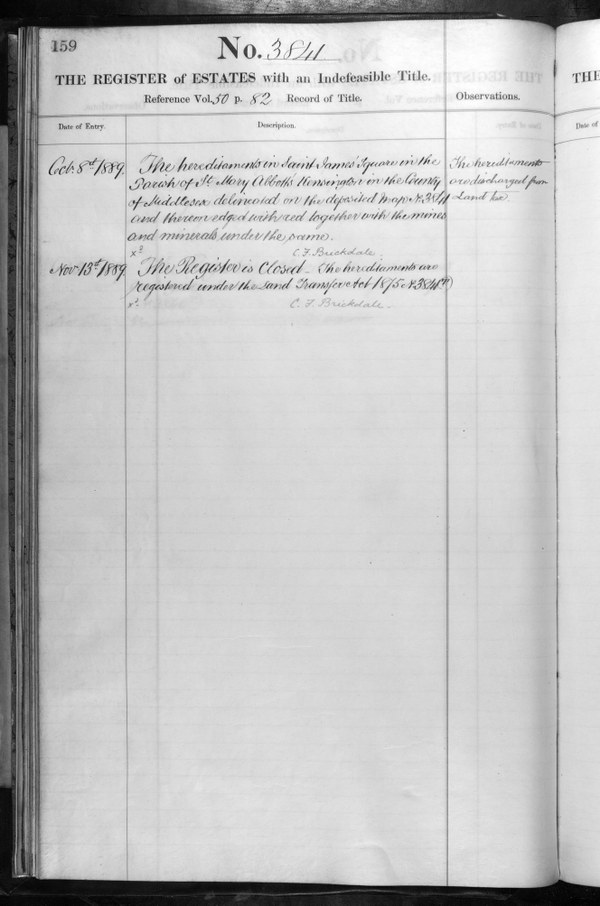 159
No. 3841
THE REGISTER of ESTATES with an Indefeasible Title.
Reference Vol. 50 p. 82 Record of Title.
Observations.
Date of Entry.
Description.
Oct. 8th 1889.
The hereditaments in Saint James Square in the
Parish of St. Mary Abbotts Kensington in the County
of Middlesex delineated on the deposited map No 3841
and thereon edged with red together with the mines
and minerals under the same.
C. F. Brickdale.
The hereditaments
are discharged from
Land tax.
Nov. 13th 1889.
The Register is Closed. The hereditaments are
registered under the Land Transfer Act 1875
C. F. Brickdale.
THE
Date of